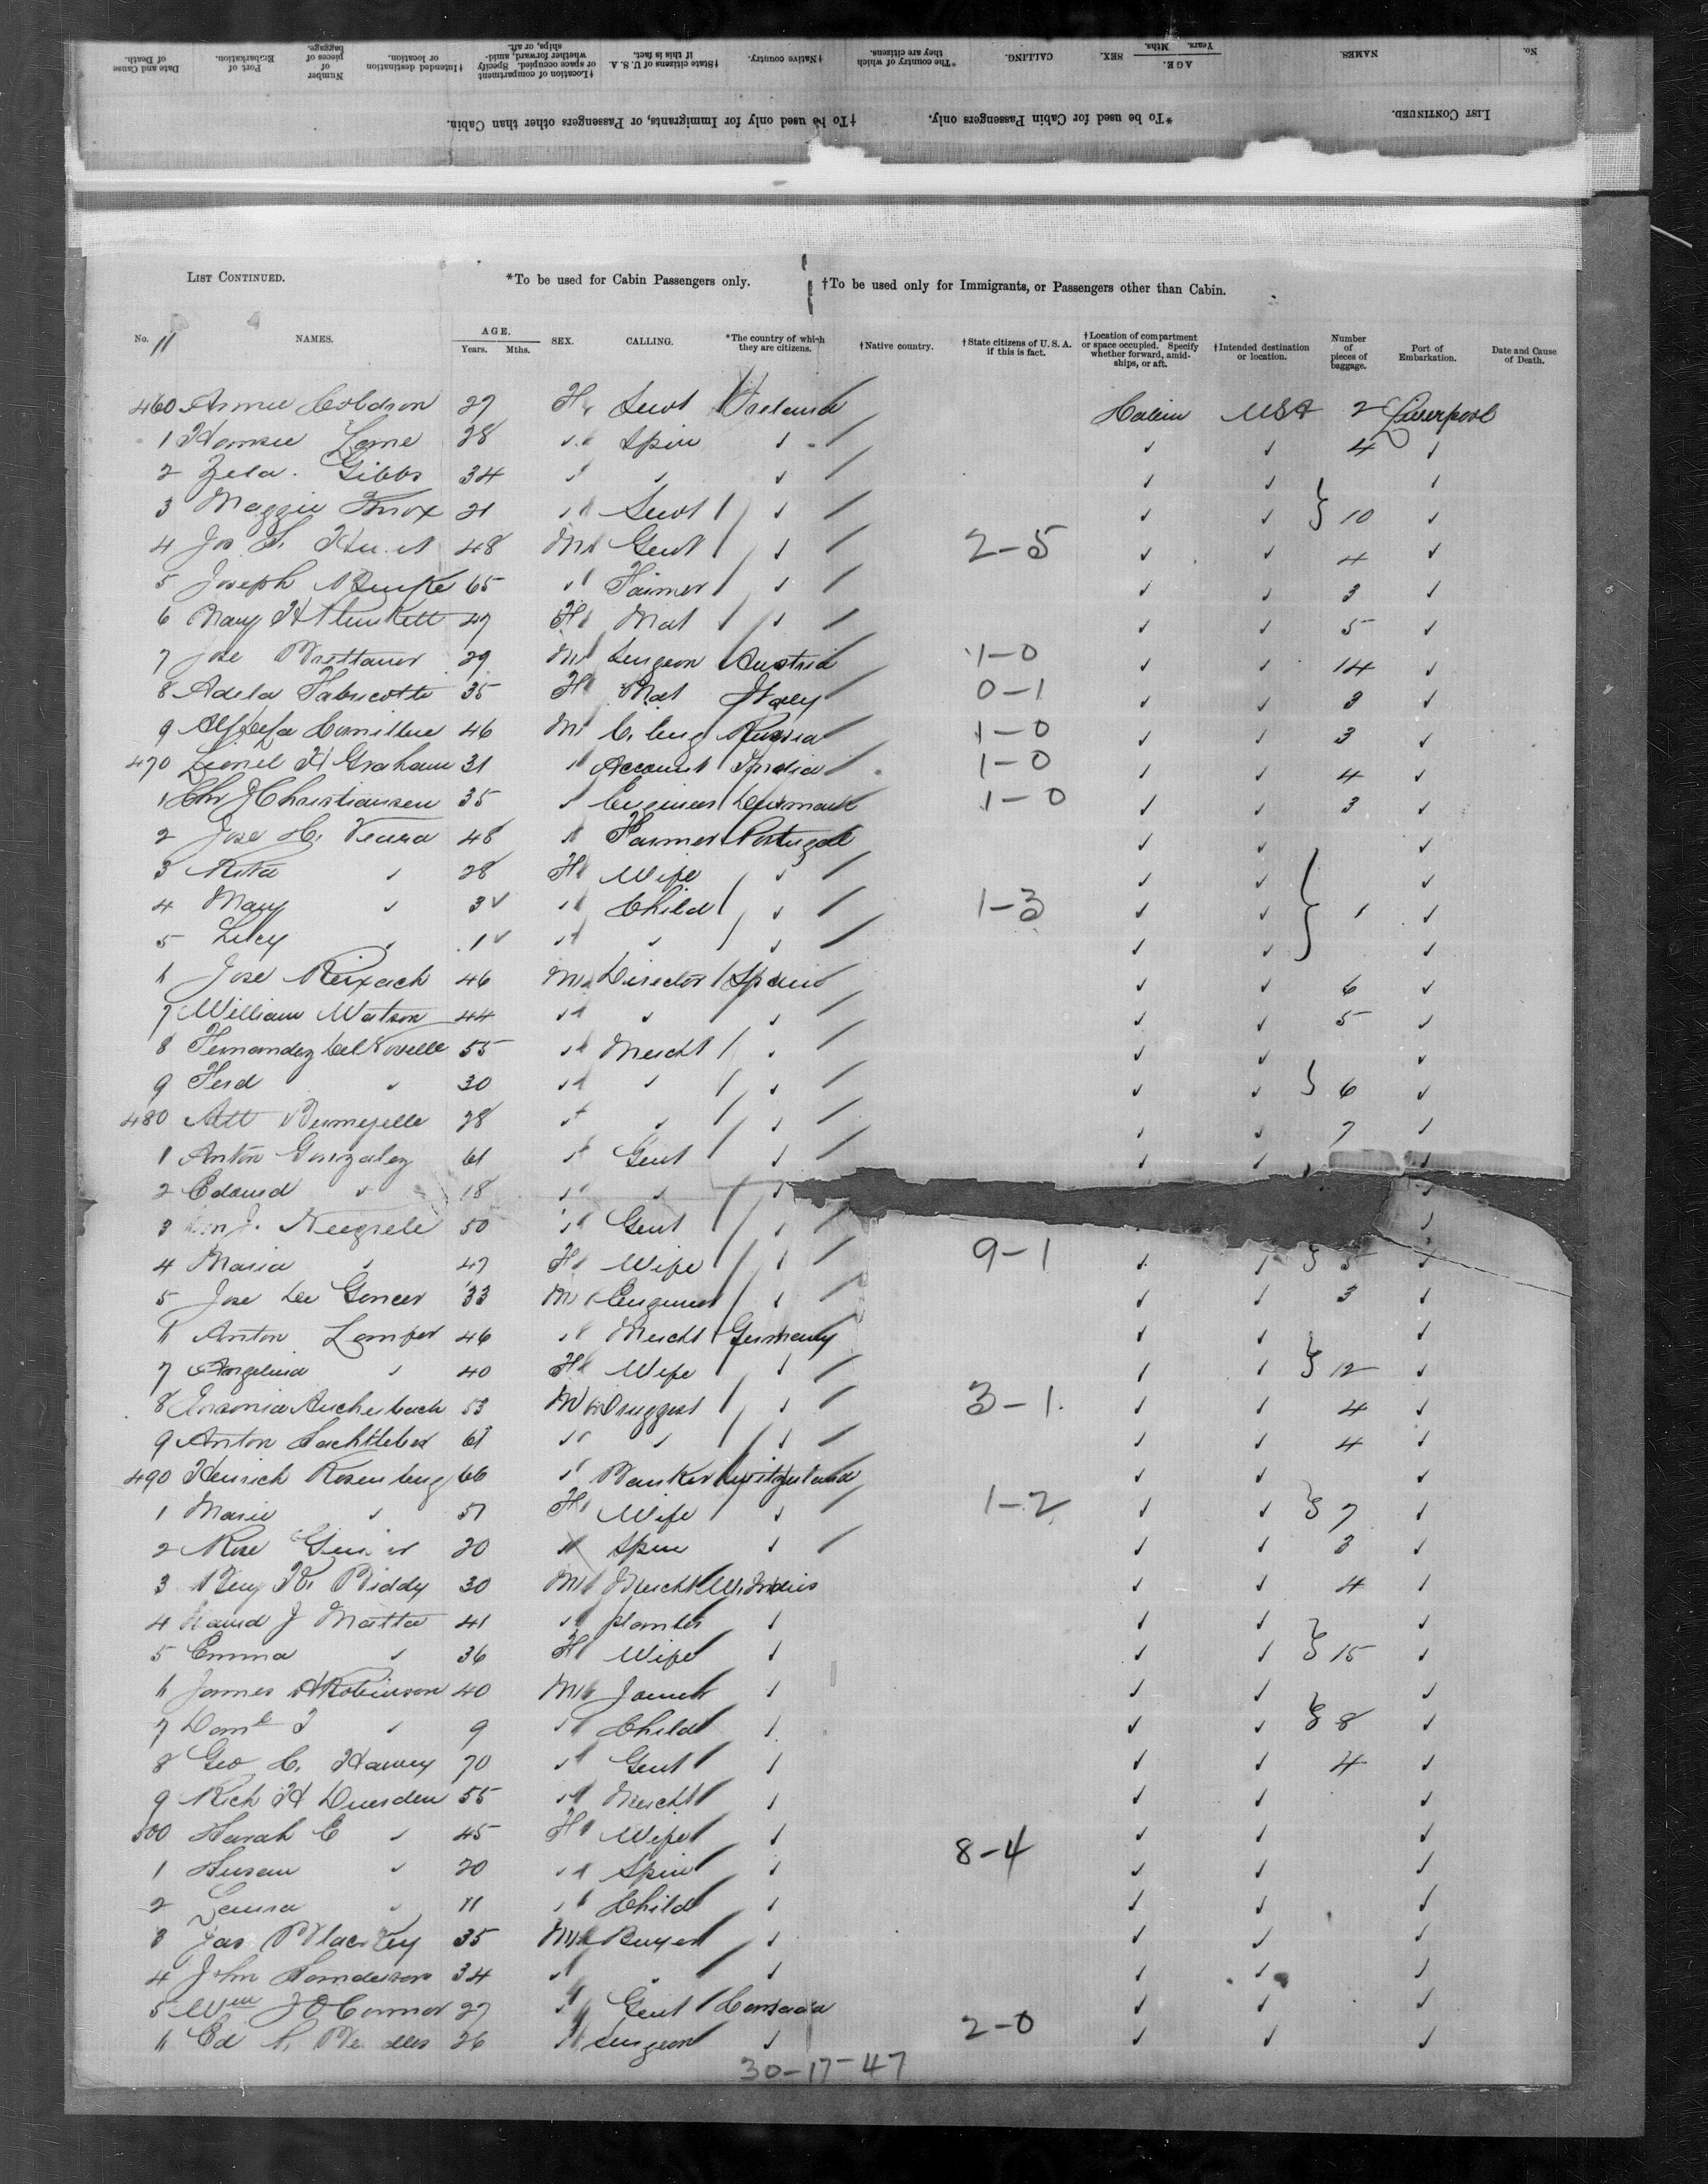 LIST CONTINUED. *To be used for Cabin Passengers only. †To be used only for Immigrants, or Passengers other than Cabin.
No. NAMES. AGE. Years. Mths. SEX. CALLING. *The country of which they are citizens. †Native country. †State citizens of U.S.A. if this is fact. †Location of compartment or space occupied. Specify whether forward, amidships, or aft. †Intended destination or location. Number of pieces of baggage. Port of Embarkation. Date and Cause of Death.
LIST CONTINUED. *To be used for Cabin Passengers only. †To be used only for Immigrants, or Passengers other than Cabin.
No. 11 NAMES. AGE. Years. Mths. SEX. CALLING. *The country of which they are citizens. †Native country. †State citizens of U.S.A. if this is fact. †Location of compartment or space occupied. Specify whether forward, amidships, or aft. †Intended destination or location. Number of pieces of baggage. Port of Embarkation. Date and Cause of Death.
460 27 F Servt Ireland Cabin USA 2 Liverpool
1 28 ✓ Spin ✓ ✓ ✓ 4 ✓
2 Zela. Gibbs 34 ✓ ✓ ✓ ✓ ✓ ✓
3 Maggie Knox 21 ✓ Servt ✓ ✓ ✓ } 10 ✓
4 Jos S. 48 M Gent ✓ 2-5 ✓ ✓ 4 ✓
5 Joseph 65 ✓ Farmer ✓ ✓ ✓ 3 ✓
6 Mary H Plunkett 47 F Mat ✓ ✓ ✓ 5 ✓
7 Jose Brettauer 29 M Surgeon Austria 1-0 ✓ ✓ 14 ✓
8 Adela Fabricotti 35 F Mat Italy 0-1 ✓ ✓ 3 ✓
9 46 M C. Eng Russia 1-0 ✓ ✓ 3 ✓
470 Lionel H Graham 31 ✓ Account India 1-0 ✓ ✓ 4 ✓
1 Chr J Christiansen 35 ✓ Engineer Denmark 1-0 ✓ ✓ 3 ✓
2 Jose C. Veara 48 ✓ Farmer Portugal ✓ ✓ ✓
3 Rita ✓ 28 F Wife ✓ ✓ ✓ ✓
4 Mary ✓ 3 ✓ Child ✓ 1-3 ✓ ✓ } 1 ✓
5 Lucy ✓ 1 ✓ ✓ ✓ ✓ ✓ ✓
6 Jose Reixach 46 M Director Spain ✓ ✓ 6 ✓
7 William Watson 44 ✓ ✓ ✓ ✓ ✓ 5 ✓
8 Fernandez del 55 ✓ Mercht ✓ ✓ ✓ ✓
9 Ferd ✓ 30 ✓ ✓ ✓ ✓ ✓ } 6 ✓
480 28 ✓ ✓ ✓ ✓ ✓ 7 ✓
1 Anton Gonzalez 61 ✓ Gent ✓ ✓ ✓ ✓
2 Edouard ✓ 18 ✓ ✓ ✓ ✓
3 50 ✓ Gent ✓ ✓
4 Maria ✓ 47 F Wife ✓ 9-1 ✓ ✓ } 5 ✓
5 Jose 33 M Engineer ✓ ✓ ✓ 3 ✓
6 Anton 46 ✓ Mercht Germany ✓ ✓ ✓
7 Angelina ✓ 40 F Wife ✓ ✓ ✓ } 12 ✓
8 53 M Druggist ✓ 3-1 ✓ ✓ 4 ✓
9 Anton Sachtleben 61 ✓ ✓ ✓ ✓ ✓ 4 ✓
490 Heinrich Rosenberg 66 ✓ Banker Switzerland ✓ ✓ ✓
1 Marie ✓ 51 F Wife ✓ 1-2 ✓ ✓ } 7 ✓
2 Rose 20 ✓ Spin ✓ ✓ ✓ 3 ✓
3 Benj K. Biddy 30 M Mercht W. Indies ✓ ✓ 4 ✓
4 David J Matta 41 ✓ planter ✓ ✓ ✓ ✓
5 Emma ✓ 36 F Wife ✓ ✓ ✓ } 15 ✓
6 James Robinson 40 M ✓ ✓ ✓ ✓
7 Danl I ✓ 9 ✓ Child ✓ ✓ ✓ } 8 ✓
8 Geo C. Harvey 70 ✓ Gent ✓ ✓ ✓ 4 ✓
9 Rich H Duesden 55 ✓ Mercht ✓ ✓ ✓ ✓
500 Sarah E ✓ 45 F Wife ✓ ✓ ✓ ✓
1 Susan ✓ 20 ✓ Spin ✓ 8-4 ✓ ✓ ✓
2 Laura ✓ 11 ✓ Child ✓ ✓ ✓
3 Jas Blackley 35 M Buyer ✓ ✓ ✓ ✓
4 John Sanderson 34 ✓ ✓ ✓ ✓ ✓ ✓
5 Wm J O'Connor 27 ✓ Gent Canada ✓ ✓ ✓
6 Ed 26 ✓ Surgeon ✓ 2-0 ✓ ✓ ✓
30-17-47